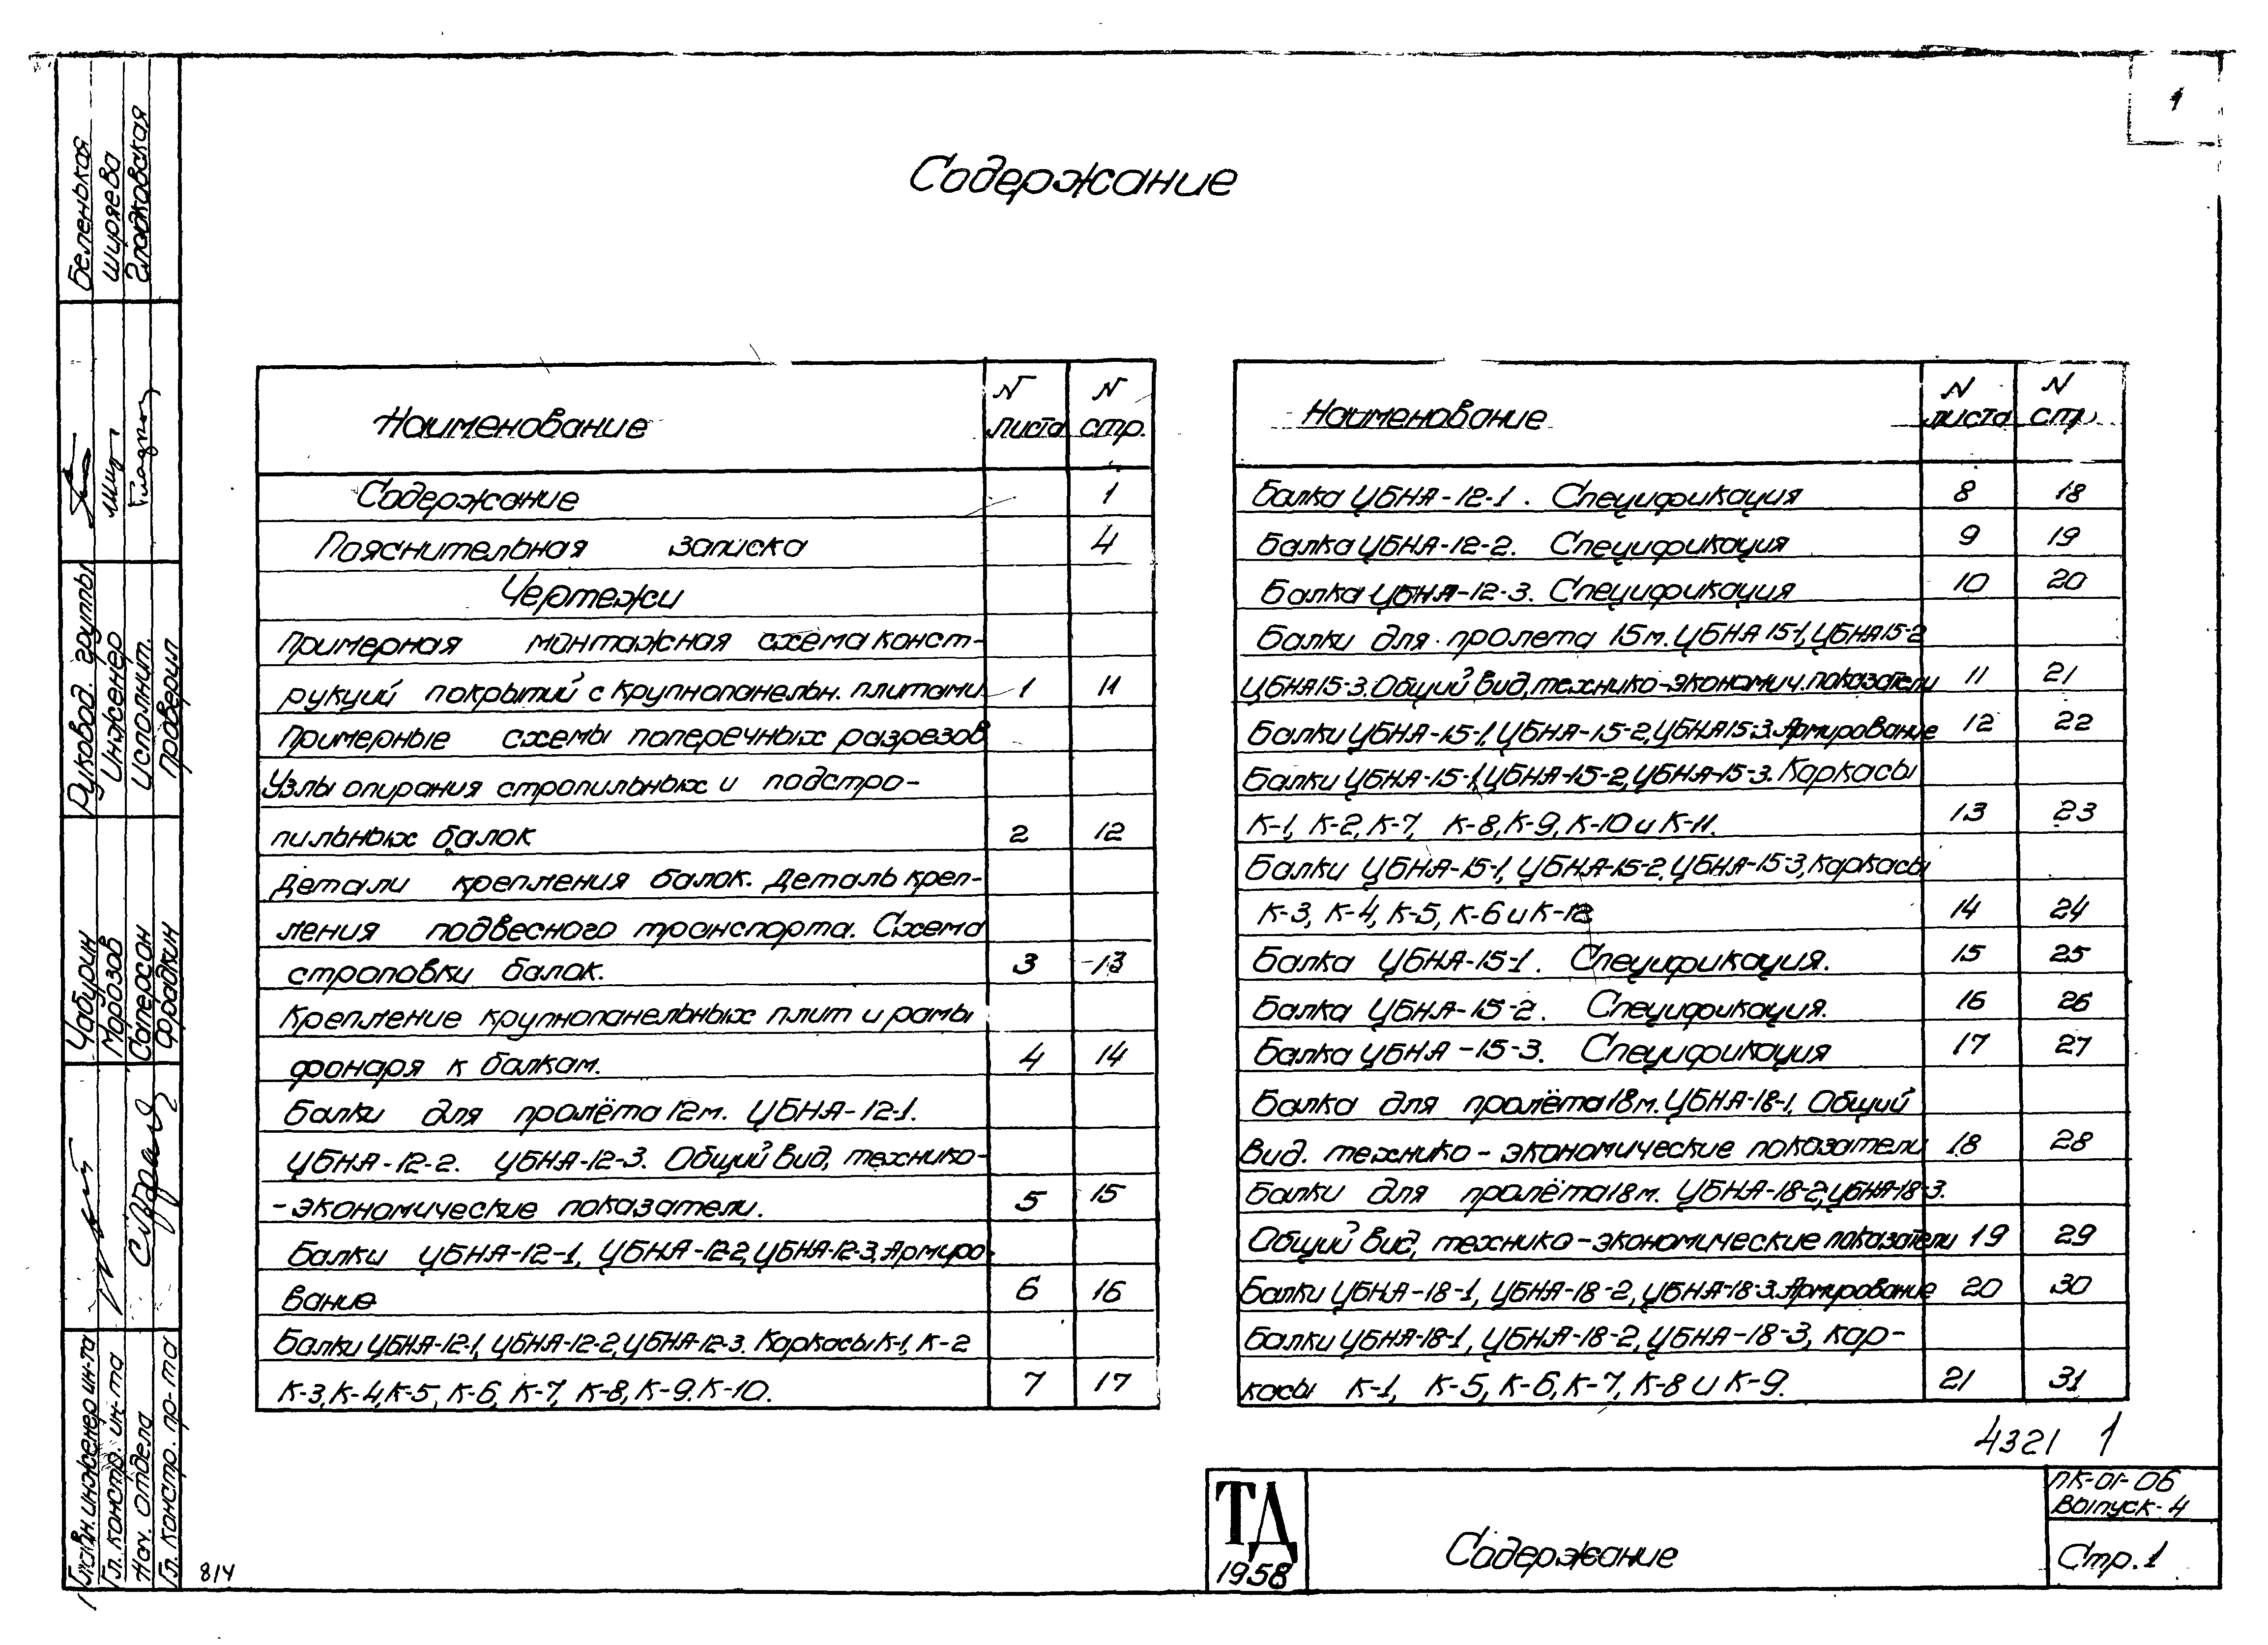 1
Содержание
Наименование
N листа
N стр.
Содержание 1
Пояснительная записка 4
Чертежи
Примерная монтажная схема конст-
рукций покрытий с крупнопанельн. плитами 1 11
Примерные схемы поперечных разрезов
Узлы опирания стропильных и подстро-
пильных балок 2 12
Детали крепления балок. Деталь креп-
ления подвесного транспорта. Схема
строповки балок. 3 13
Крепление крупнопанельных плит и рамы
фонаря к балкам. 4 14
Балки для пролёта 12м. ЦБНА-12-1.
ЦБНА-12-2. ЦБНА-12-3. Общий вид, технико-
-экономические показатели. 5 15
Балки ЦБНА-12-1, ЦБНА-12-2, ЦБНА-12-3, Армиро-
вание 6 16
Балки ЦБНА-12-1, ЦБНА-12-2, ЦБНА-12-3. Каркасы К-1, К-2
К-3, К-4, К-5, К-6, К-7, К-8, К-9. К-10. 7 17
Наименование
N листа
N стр.
Балка ЦБНА-12-1. Спецификация 8 18
Балка ЦБНА-12-2. Спецификация 9 19
Балка ЦБНА-12-3. Спецификация 10 20
Балки для пролета 15м. ЦБНА 15-1, ЦБНА 15-2
ЦБНА 15-3. Общий вид, технико-экономич. показатели 11 21
Балки ЦБНА-15-1, ЦБНА-15-2, ЦБНА 15-3. Армирование 12 22
Балки ЦБНА-15-1, ЦБНА-15-2, ЦБНА-15-3. Каркасы
К-1, К-2, К-7, К-8, К-9, К-10 и К-11. 13 23
Балки ЦБНА-15-1, ЦБНА-15-2, ЦБНА-15-3, Каркасы
К-3, К-4, К-5, К-6 и К-12 14 24
Балка ЦБНА-15-1. Спецификация. 15 25
Балка ЦБНА-15-2. Спецификация. 16 26
Балка ЦБНА-15-3. Спецификация 17 27
Балка для пролёта 18м. ЦБНА-18-1, Общий
вид. технико-экономические показатели 18 28
Балки для пролёта 18м. ЦБНА-18-2, ЦБНА-18-3.
Общий вид, технико-экономические показатели 19 29
Балки ЦБНА-18-1, ЦБНА-18-2, ЦБНА-18-3. Армирование 20 30
Балки ЦБНА-18-1, ЦБНА-18-2, ЦБНА-18-3, кар-
касы К-1, К-5, К-6, К-7, К-8 и К-9. 21 31
4321 1
ТД
1958
Содержание
ПК-01-06
выпуск-4
Стр. 1
814
Главн. инженер ин-та Чабурин
Гл. констр. ин-та Морозов
Нач. отдела Саперсон
Гл. констр. пр-та Фрадкин
Руковод. группы Беленькая
Инженер Ширяева
Исполнит. Гладковская
Проверил